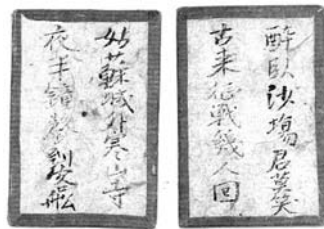 醉臥沙塲君莫笑
古来征戰幾人回
姑蘇城外寒山寺
夜半鐘聲到客舩